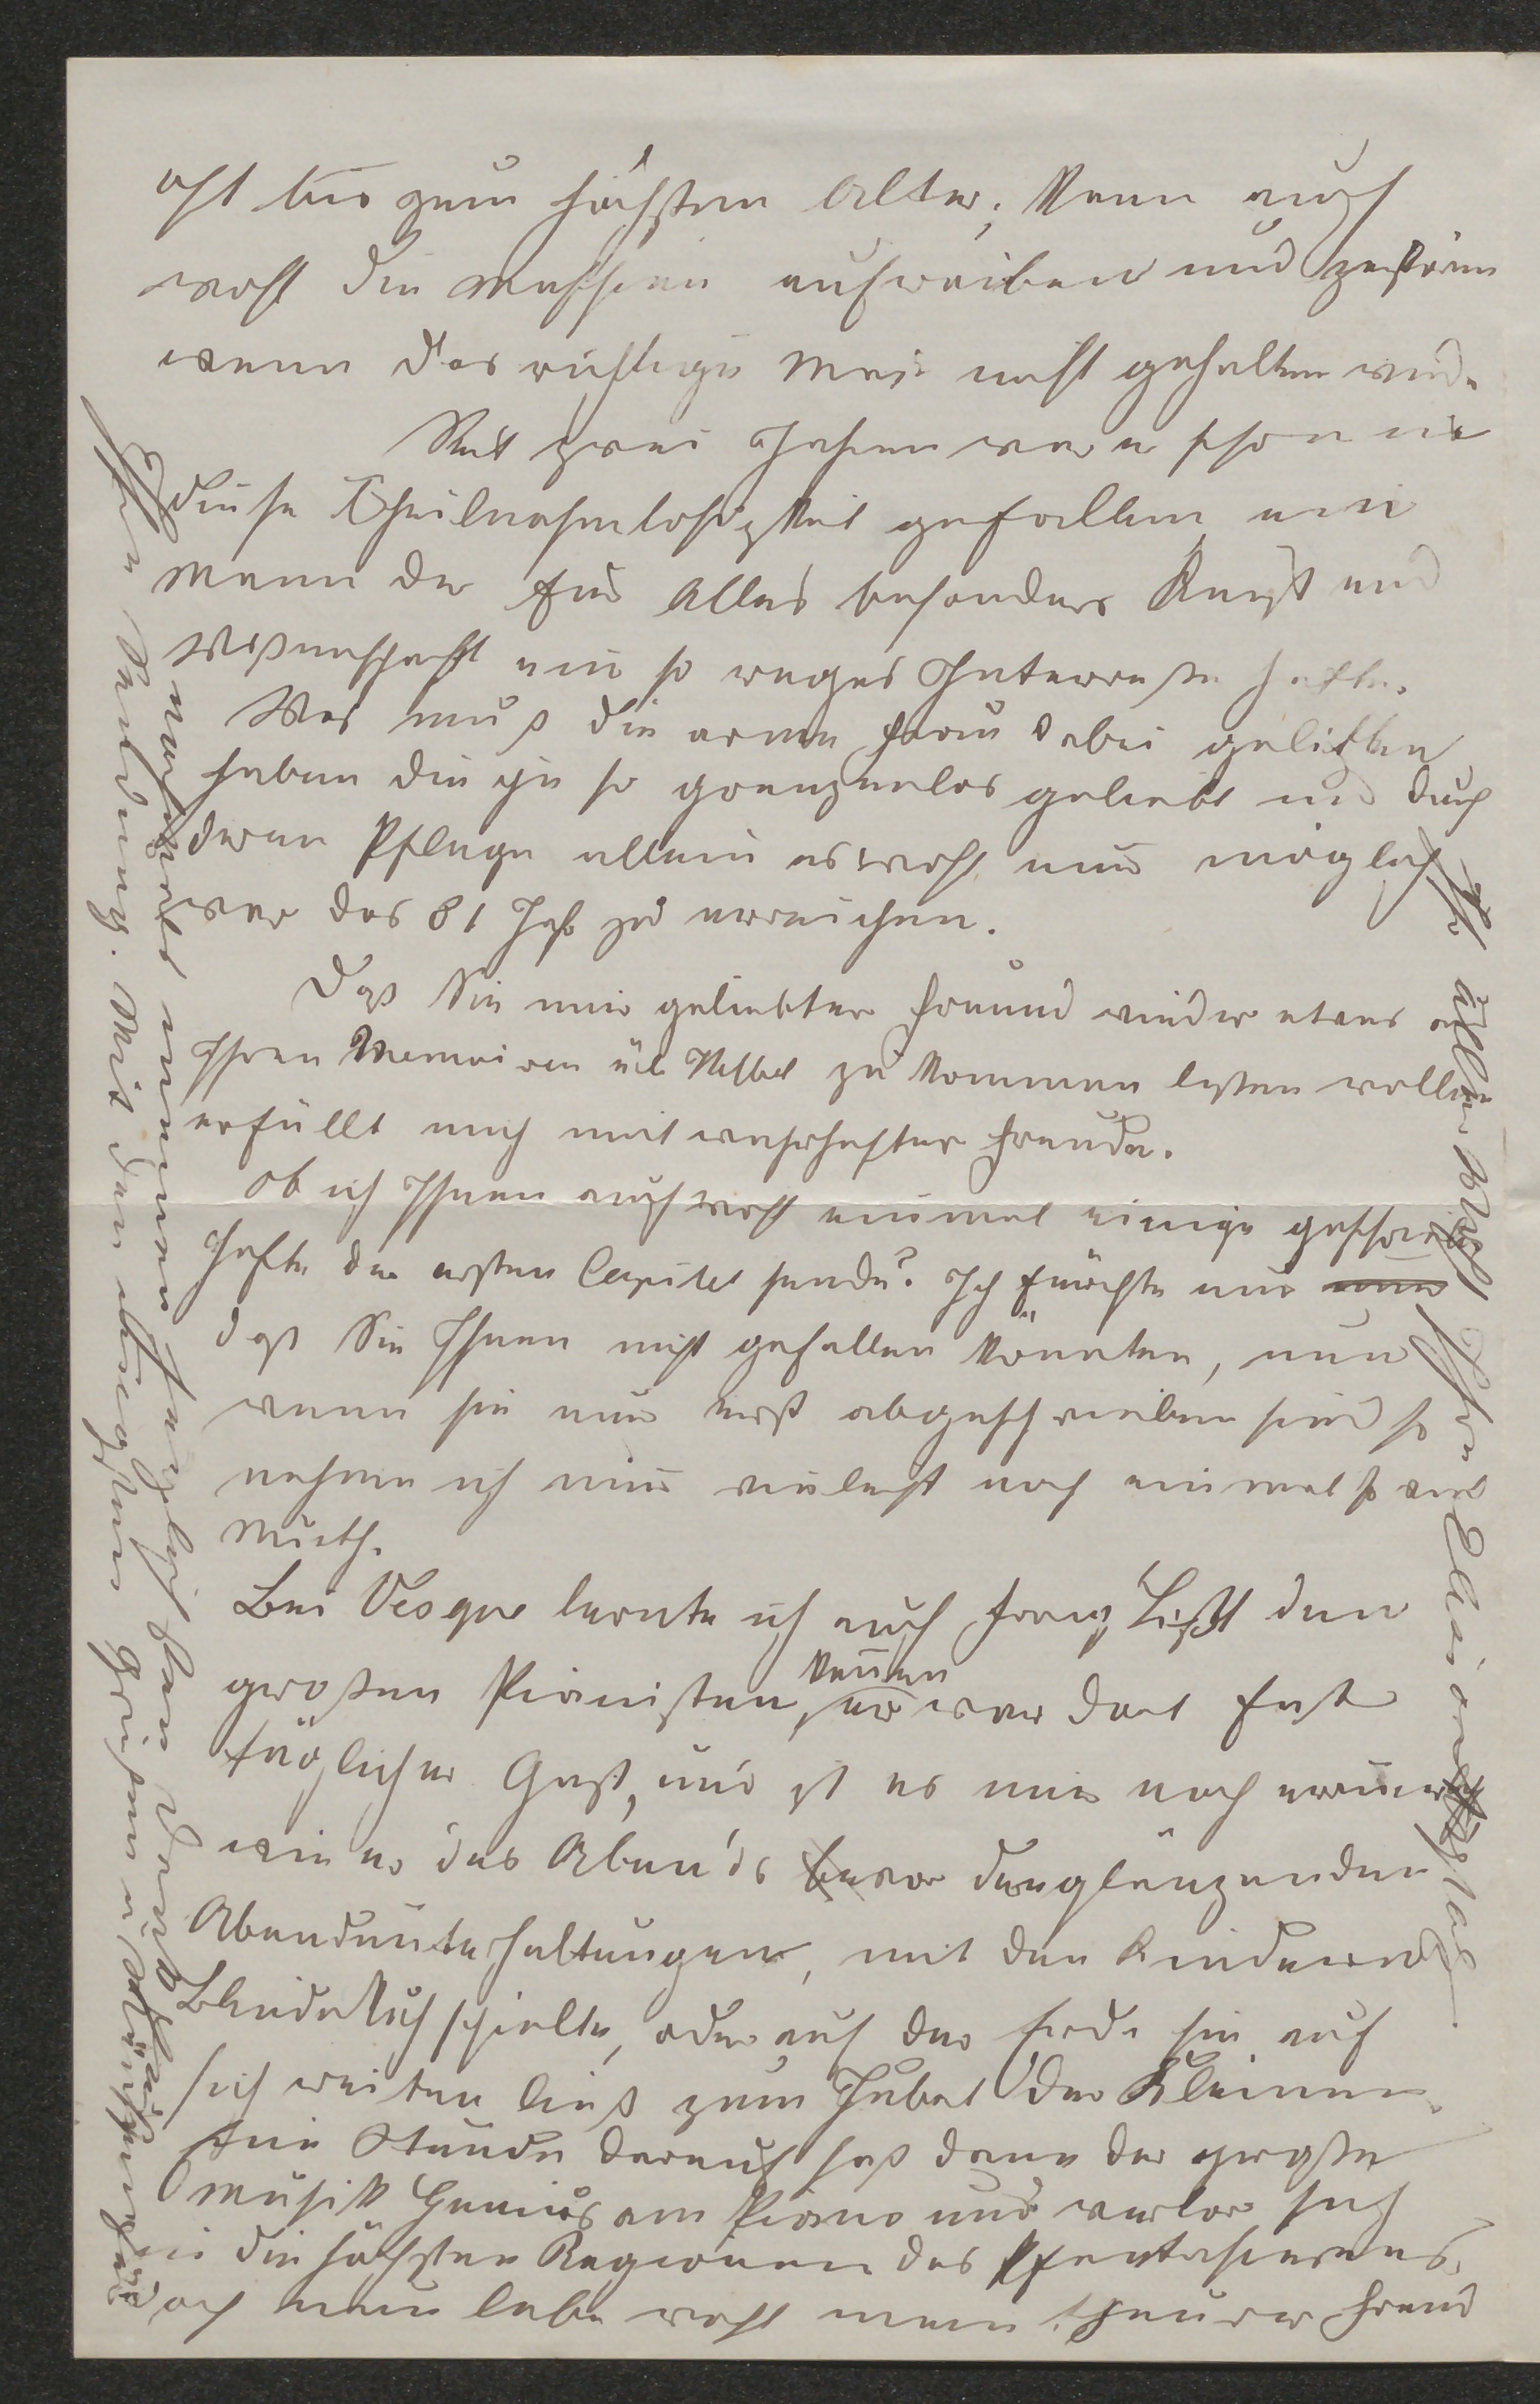 oft bis zum höchsten Alter, kann auch
wohl die Maschine aufreiben und zerstören
wenn das richtige Mas nicht gehalten wird.
Seit zwei Jahren war er schon in
diese Theilnahmlosigkeit gefallen, ein
Mann der für Alles besonders Kunst und
Wißenschaft ein so reges Interreße hatte.
Was muß die arme Frau dabei gelitten
haben die ihn so grenzenlos geliebt und durch
deren Pflege allein es wohl nur möglich
war das 81 Jahr zu erreichen.
Daß Sie mir geliebter Freund wieder etwas aus
Ihren Memoiren üb Hebbel zu kommen laßen wollen
erfüllt mich mit wahrhafter Freude.
Ob ich Ihnen auch wohl einmal einige geschrieb
Hefte der ersten Capitel sende? Ich fürchte nur
daß Sie Ihnen nicht gefallen könnten, nun
wenn sie nur erst abgeschrieben sind so
nehme ich mir vieleicht noch einmal so viel
Muth.
Bei Vesque lernte ich auch Franz Liszt den
großen Pianisten kennen, er war dort fast
täglicher Gast, und ist es mir noch erinnerlich
wie er des Abends bevor der glänzenden
Abendunterhaltungen, mit den Kindern
Blindekuh spielte, oder auf der Erde sie auf
sich reiten ließ zum Jubel der Kleinen.
Eine Stunde darauf saß dann der große
Musik Genius am Piano und verlor sich
in die höchsten Regionen des Phantasierens.
doch nun lebe wohl mein theurer Freund
nochmals meinen herzlichsten Dank für
Ihre Sendung. Mit den innigsten Grüßen u Wünschen
Ihre alte